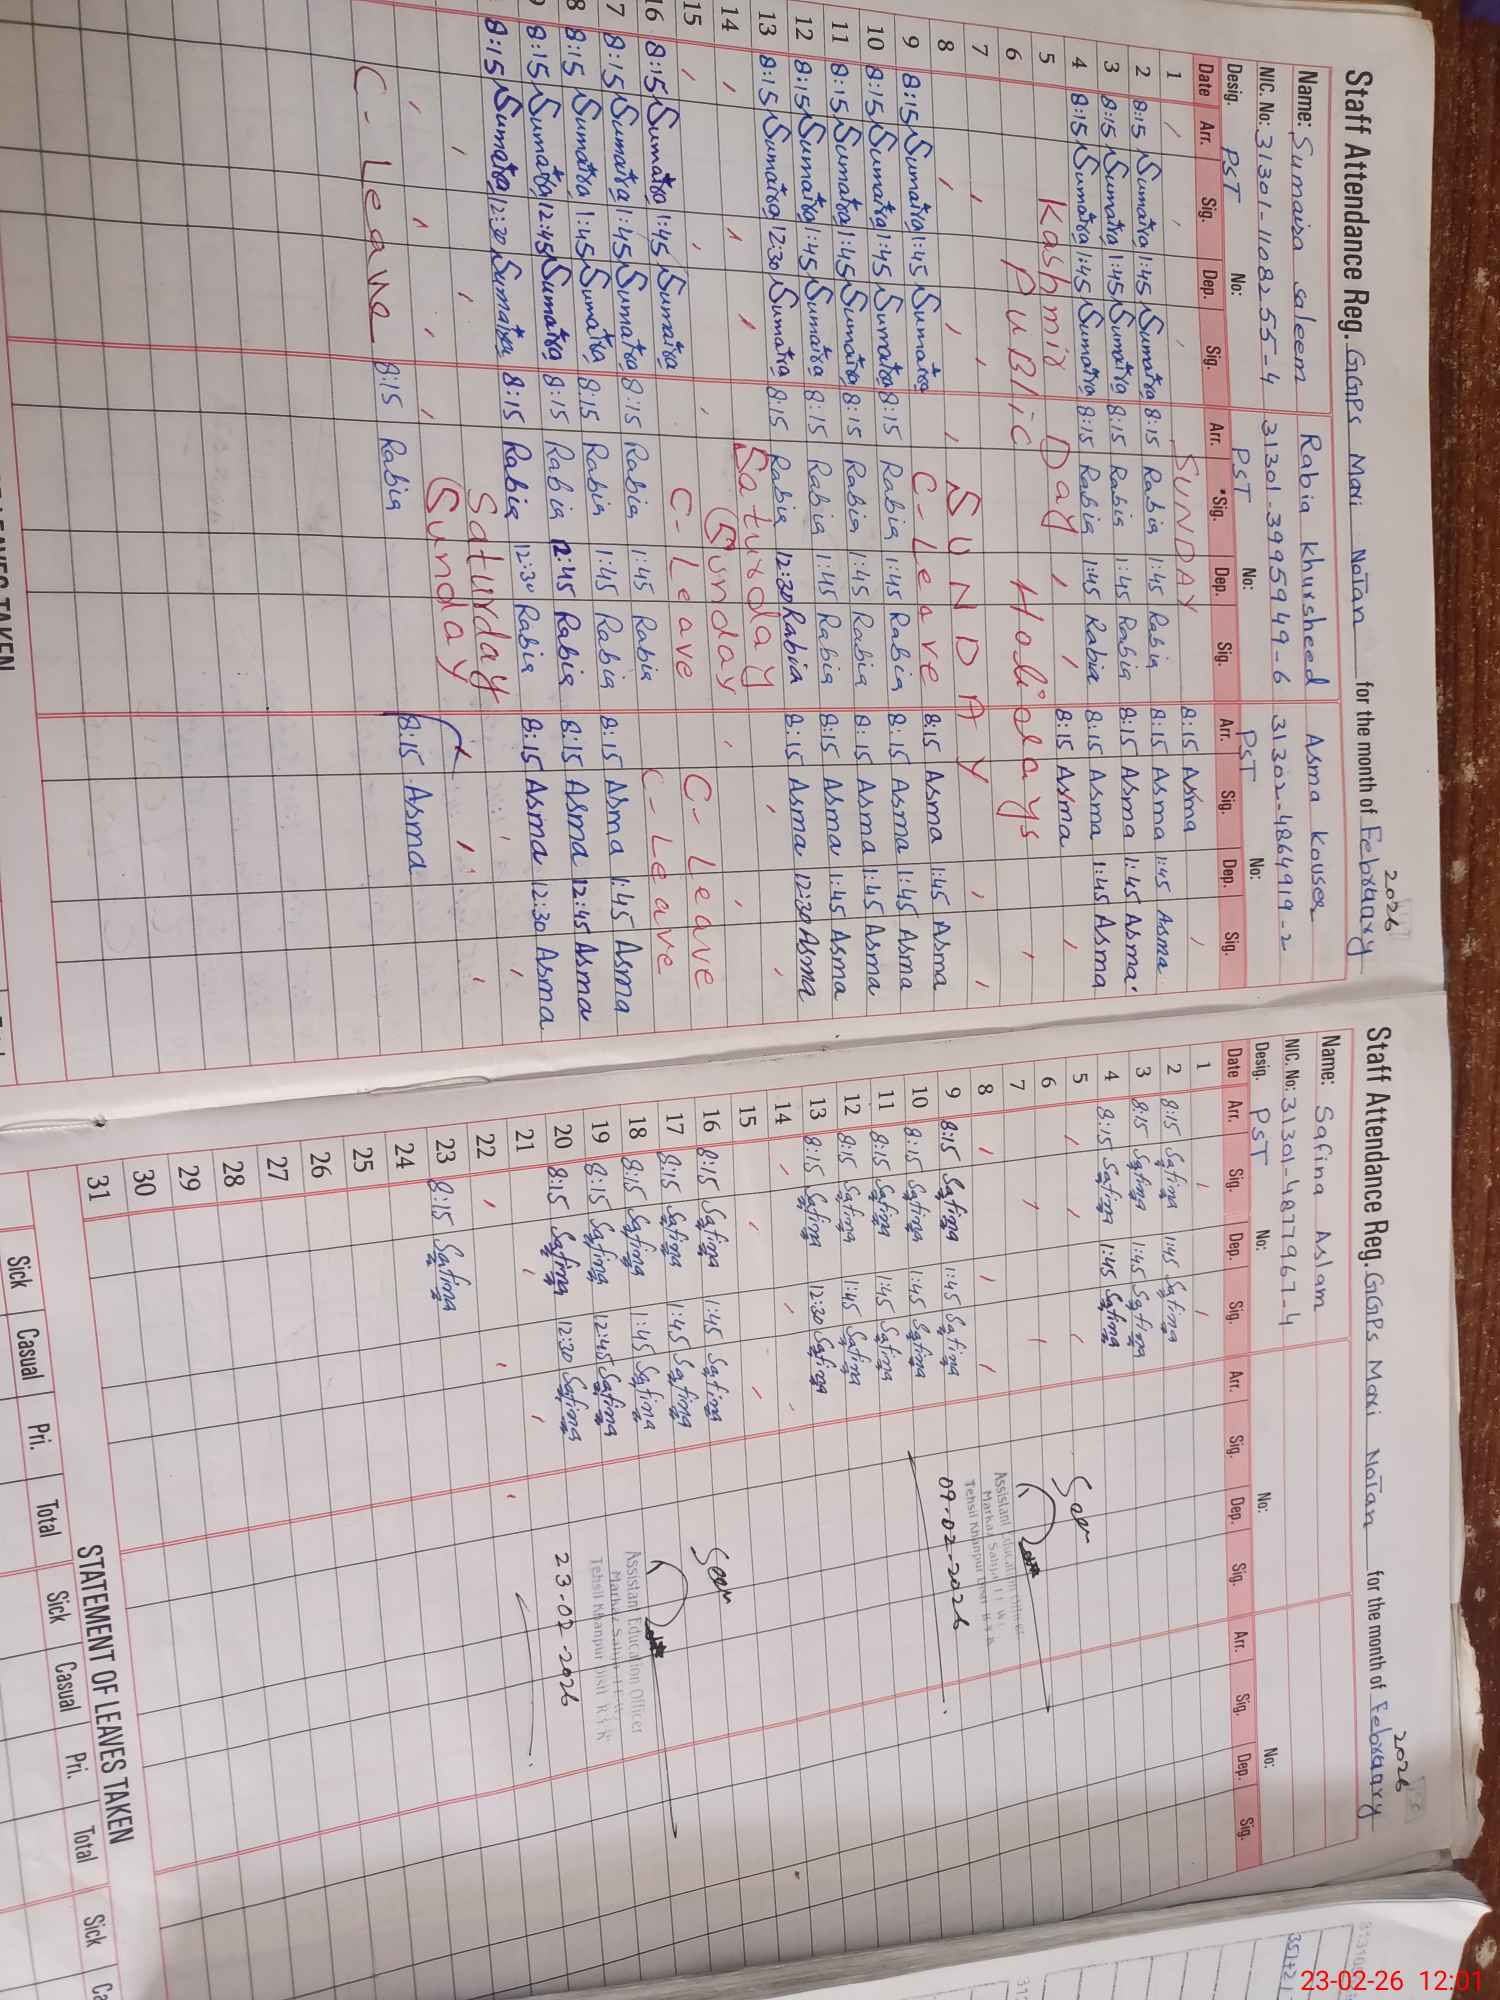 Staff Attendance Reg. GGPS Mari Notan for the month of February 2026
Name: Sumaira saleem Rabia khursheed Asma kouser
NIC. No: 31301-1108255-4 31301-3995949-6 31302-4864919-2
Desig. PST No: PST No: PST No:
Date Arr. Sig. Dep. Sig. Arr. Sig. Dep. Sig. Arr. Sig. Dep. Sig.
1 SUNDAY 8:15 Asma
2 8:15 Sumaira 1:45 Sumaira 8:15 Rabia 1:45 Rabia 8:15 Asma 1:45 Asma
3 8:15 Sumaira 1:45 Sumaira 8:15 Rabia 1:45 Rabia 8:15 Asma 1:45 Asma
4 8:15 Sumaira 1:45 Sumaira 8:15 Rabia 1:45 Rabia 8:15 Asma 1:45 Asma
5 Kashmir Day 8:15 Asma
6 PuBlic Holidays
7
8 SUNDAY
9 8:15 Sumaira 1:45 Sumaira C-Leave 8:15 Asma 1:45 Asma
10 8:15 Sumaira 1:45 Sumaira 8:15 Rabia 1:45 Rabia 8:15 Asma 1:45 Asma
11 8:15 Sumaira 1:45 Sumaira 8:15 Rabia 1:45 Rabia 8:15 Asma 1:45 Asma
12 8:15 Sumaira 1:45 Sumaira 8:15 Rabia 1:45 Rabia 8:15 Asma 1:45 Asma
13 8:15 Sumaira 12:30 Sumaira 8:15 Rabia 12:30 Rabia 8:15 Asma 12:30 Asma
14 Saturday
15 Sunday
16 8:15 Sumaira 1:45 Sumaira C-Leave C-Leave
7 8:15 Sumaira 1:45 Sumaira 8:15 Rabia 1:45 Rabia C-Leave
8 8:15 Sumaira 1:45 Sumaira 8:15 Rabia 1:45 Rabia 8:15 Asma 1:45 Asma
9 8:15 Sumaira 12:45 Sumaira 8:15 Rabia 12:45 Rabia 8:15 Asma 12:45 Asma
8:15 Sumaira 12:30 Sumaira 8:15 Rabia 12:30 Rabia 8:15 Asma 12:30 Asma
Saturday
Sunday
C-Leave 8:15 Rabia 8:15 Asma
LEAVES TAKEN
Staff Attendance Reg. GGPS Mari Notan for the month of February 2026
Name: Safina Aslam
NIC. No: 31301-4877967-4
Desig. PST No: No: No:
Date Arr. Sig. Dep. Sig. Arr. Sig. Dep. Sig. Arr. Sig. Dep. Sig.
1
2 8:15 Safina 1:45 Safina
3 8:15 Safina 1:45 Safina
4 8:15 Safina 1:45 Safina
5 Seen
6
7 Assistant Education Officer
8 Tehsil Khanpur Distt R.Y.K
9 8:15 Safina 1:45 Safina 09-02-2026
10 8:15 Safina 1:45 Safina
11 8:15 Safina 1:45 Safina
12 8:15 Safina 1:45 Safina
13 8:15 Safina 12:30 Safina
14
15
16 8:15 Safina 1:45 Safina Seen
17 8:15 Safina 1:45 Safina
18 8:15 Safina 1:45 Safina Assistant Education Officer
19 8:15 Safina 12:45 Safina Tehsil Khanpur Distt R.Y.K
20 8:15 Safina 12:30 Safina 23-02-2026
21
22
23 8:15 Safina
24
25
26
27
28
29
30
31
STATEMENT OF LEAVES TAKEN
Sick Casual Pri. Total Sick Casual Pri. Total Sick Ca
23-02-26 12:01